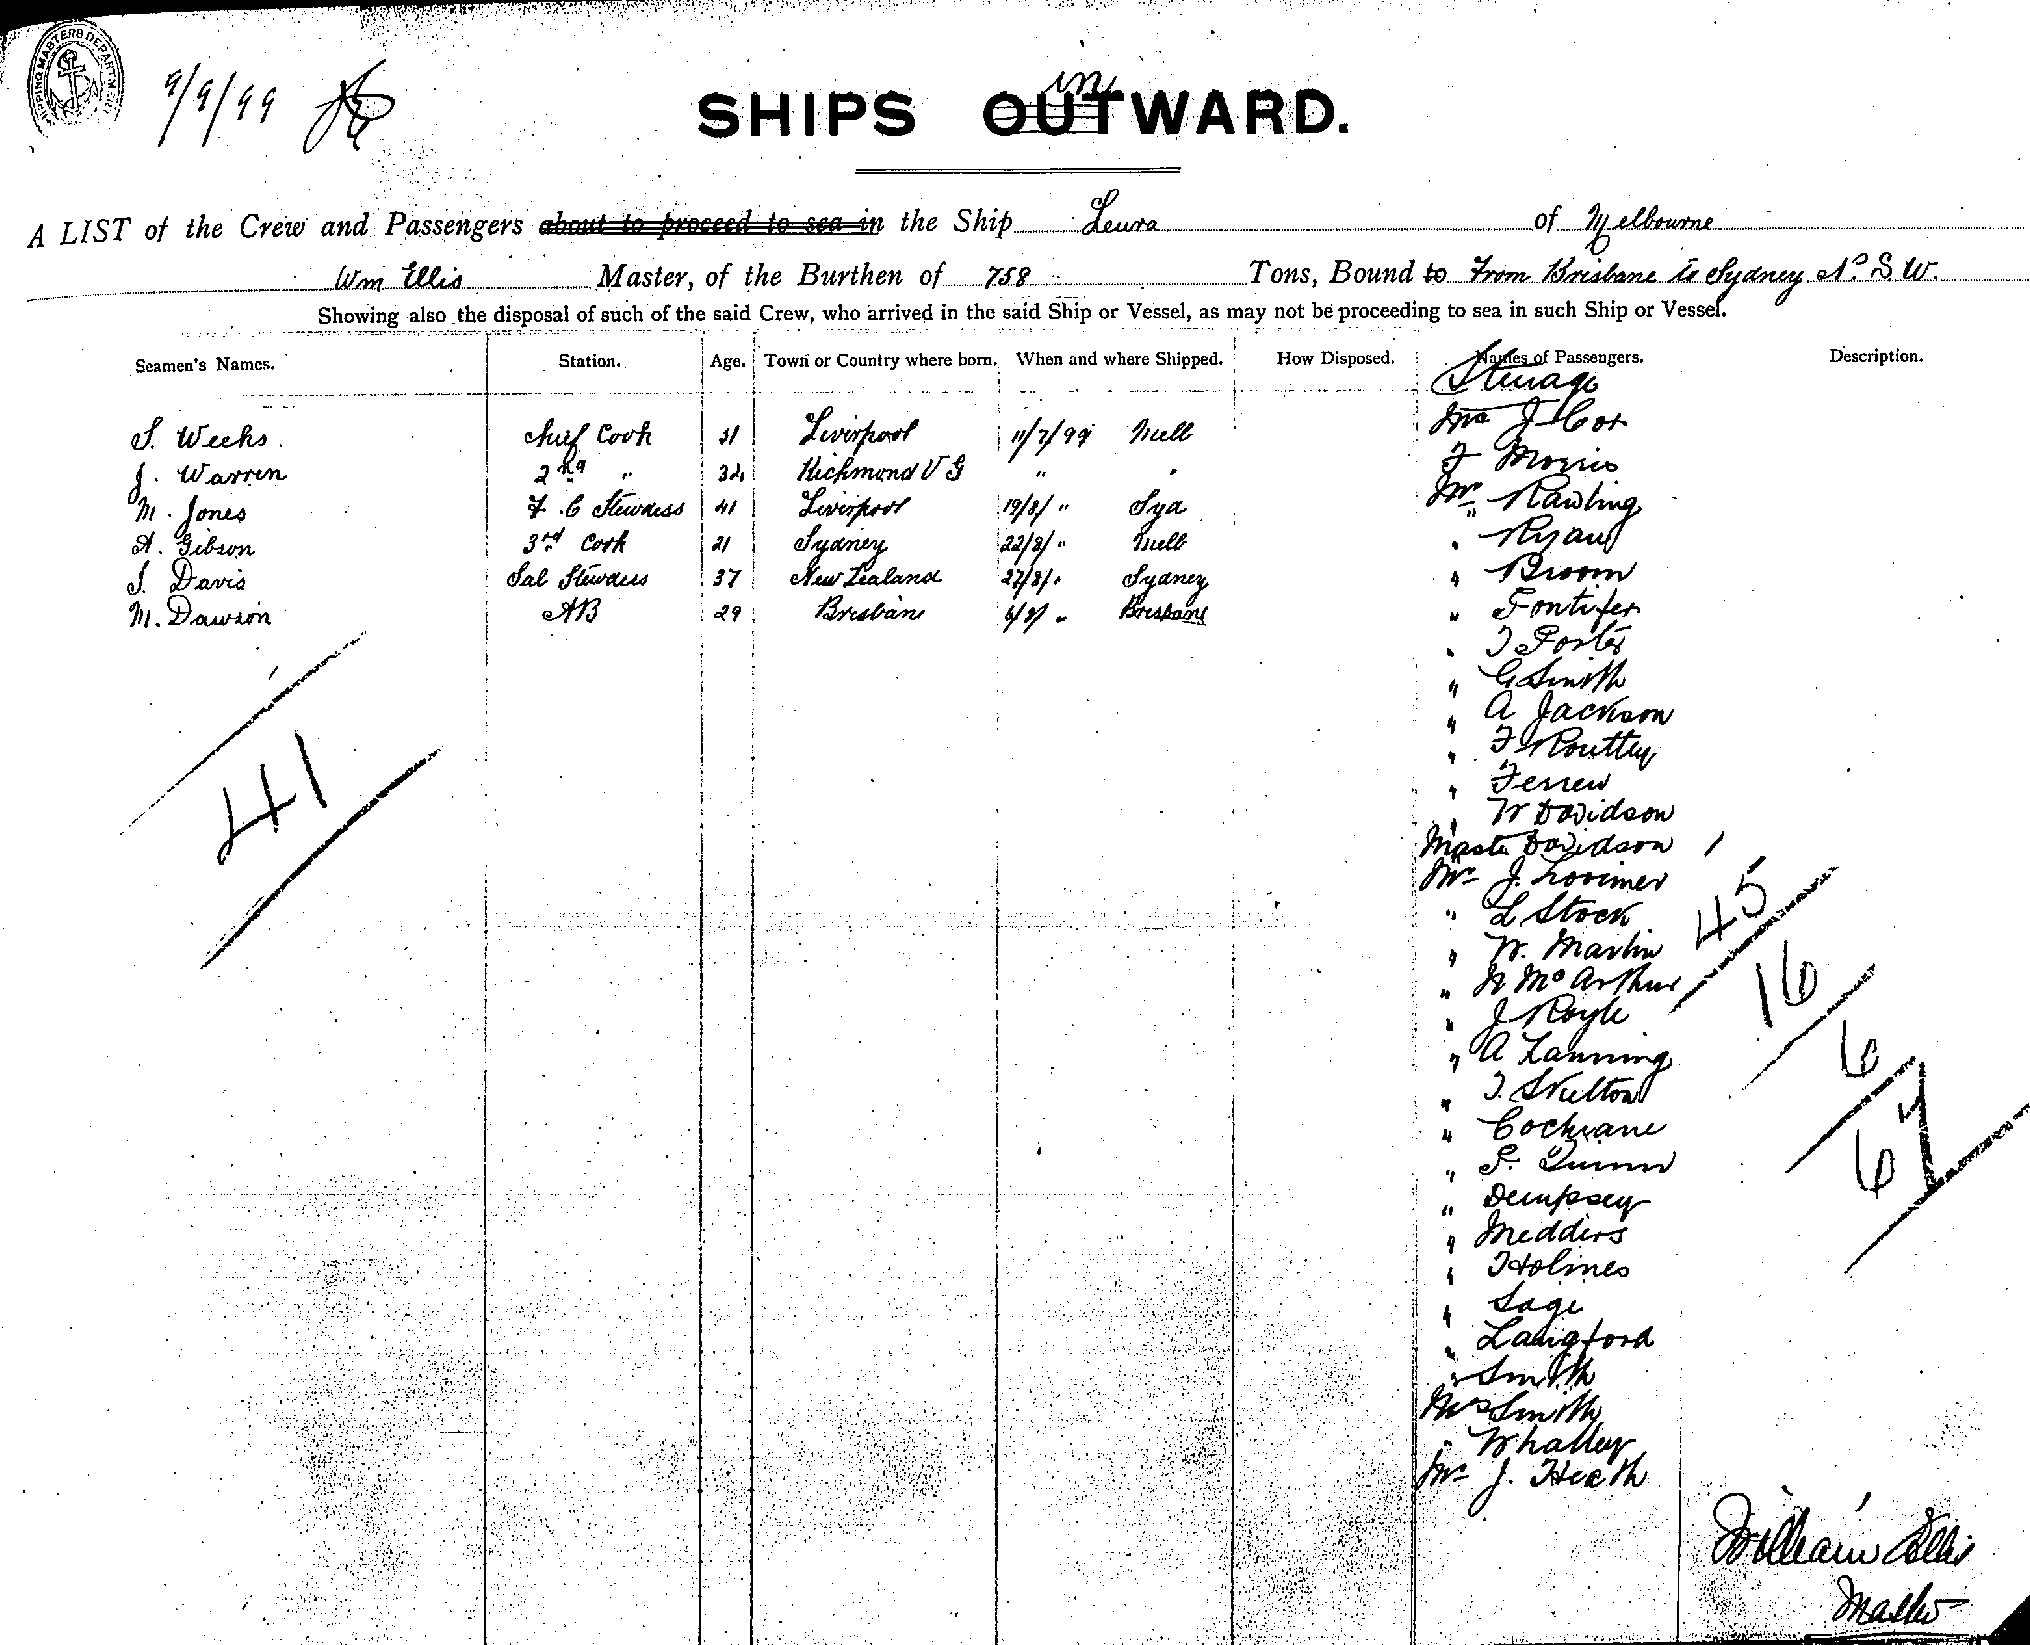 SHIPPING MASTERS DEPARTMENT
9/9/99
in
SHIPS OUTWARD.
A LIST of the Crew and Passengers about to proceed to sea in the Ship Leura of Melbourne
Wm Ellis Master, of the Burthen of 758 Tons, Bound to From Brisbane to Sydney N. S W.
Showing also the disposal of such of the said Crew, who arrived in the said Ship or Vessel, as may not be proceeding to sea in such Ship or Vessel.
Seamen's Names. Station. Age. Town or Country where born. When and where Shipped. How Disposed. Names of Passengers. Description.
Steerage
S. Weeks Chief Cook 31 Liverpool 11/7/99 Melb
J. Warren 2nd " 34 Richmond V G " "
M. Jones F. C Stewdess 41 Liverpool 19/8/ " Syd
A. Gibson 3rd Cook 21 Sydney 22/8/ " Melb
S. Davis Sal Stewdess 37 New Zealand 27/8/ " Sydney
M. Dawson AB 29 Brisbane 6/9/ " Brisbane
J Cox
F Morris
Mr Rawling
" Ryan
" Broom
" Pontifex
" T Porter
" G Smith
" A Jackson
" F Routtey
" Ferren
" W Davidson
Master Davidson
Mr J. Lorimer
" L Stock
" W. Martin
" N McArthur
" J Royle
" A Lanning
" T. Skelton
" Cochrane
" P. Quinn
" Dempsey
" Medders
" Holmes
" Sage
" Langford
" Smith
Mrs Smith
" Whalley
Mr J. Heath
41
45
16
6
67
William Ellis
Master